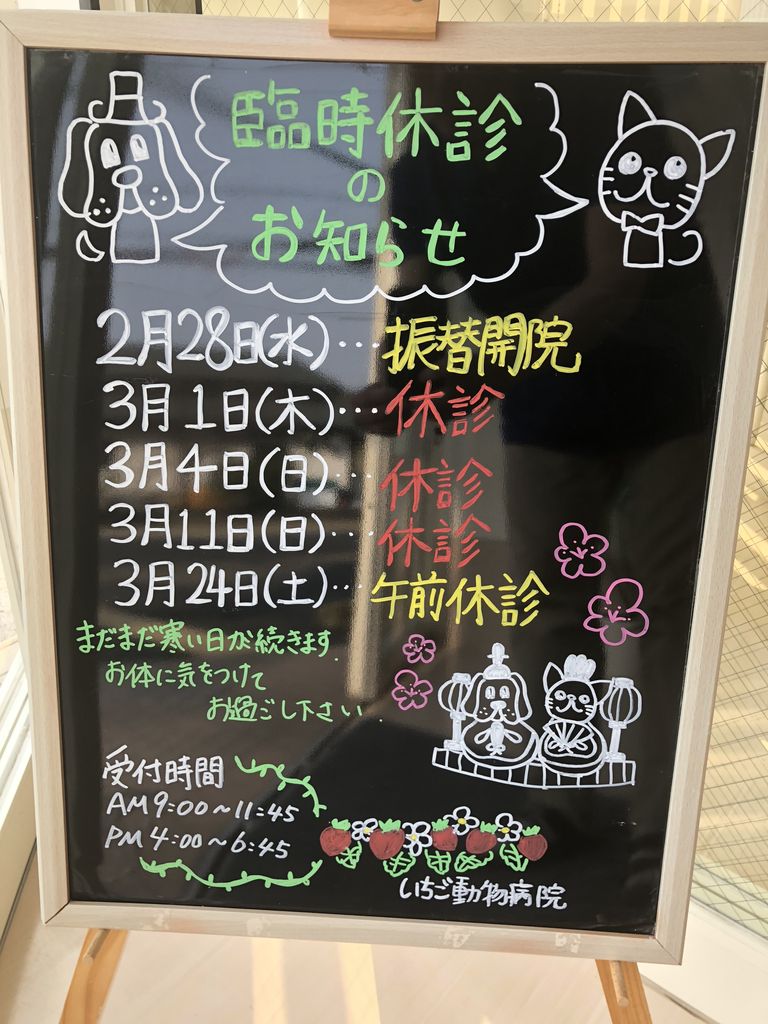 臨時休診
の
お知らせ
2月28日(水)…振替開院
3月1日(木)…休診
3月4日(日)…休診
3月11日(日)…休診
3月24日(土)…午前休診
まだまだ寒い日が続きます.
お体に気をつけて
お過ごし下さい.
受付時間
AM9:00~11:45
PM4:00~6:45
いちご動物病院